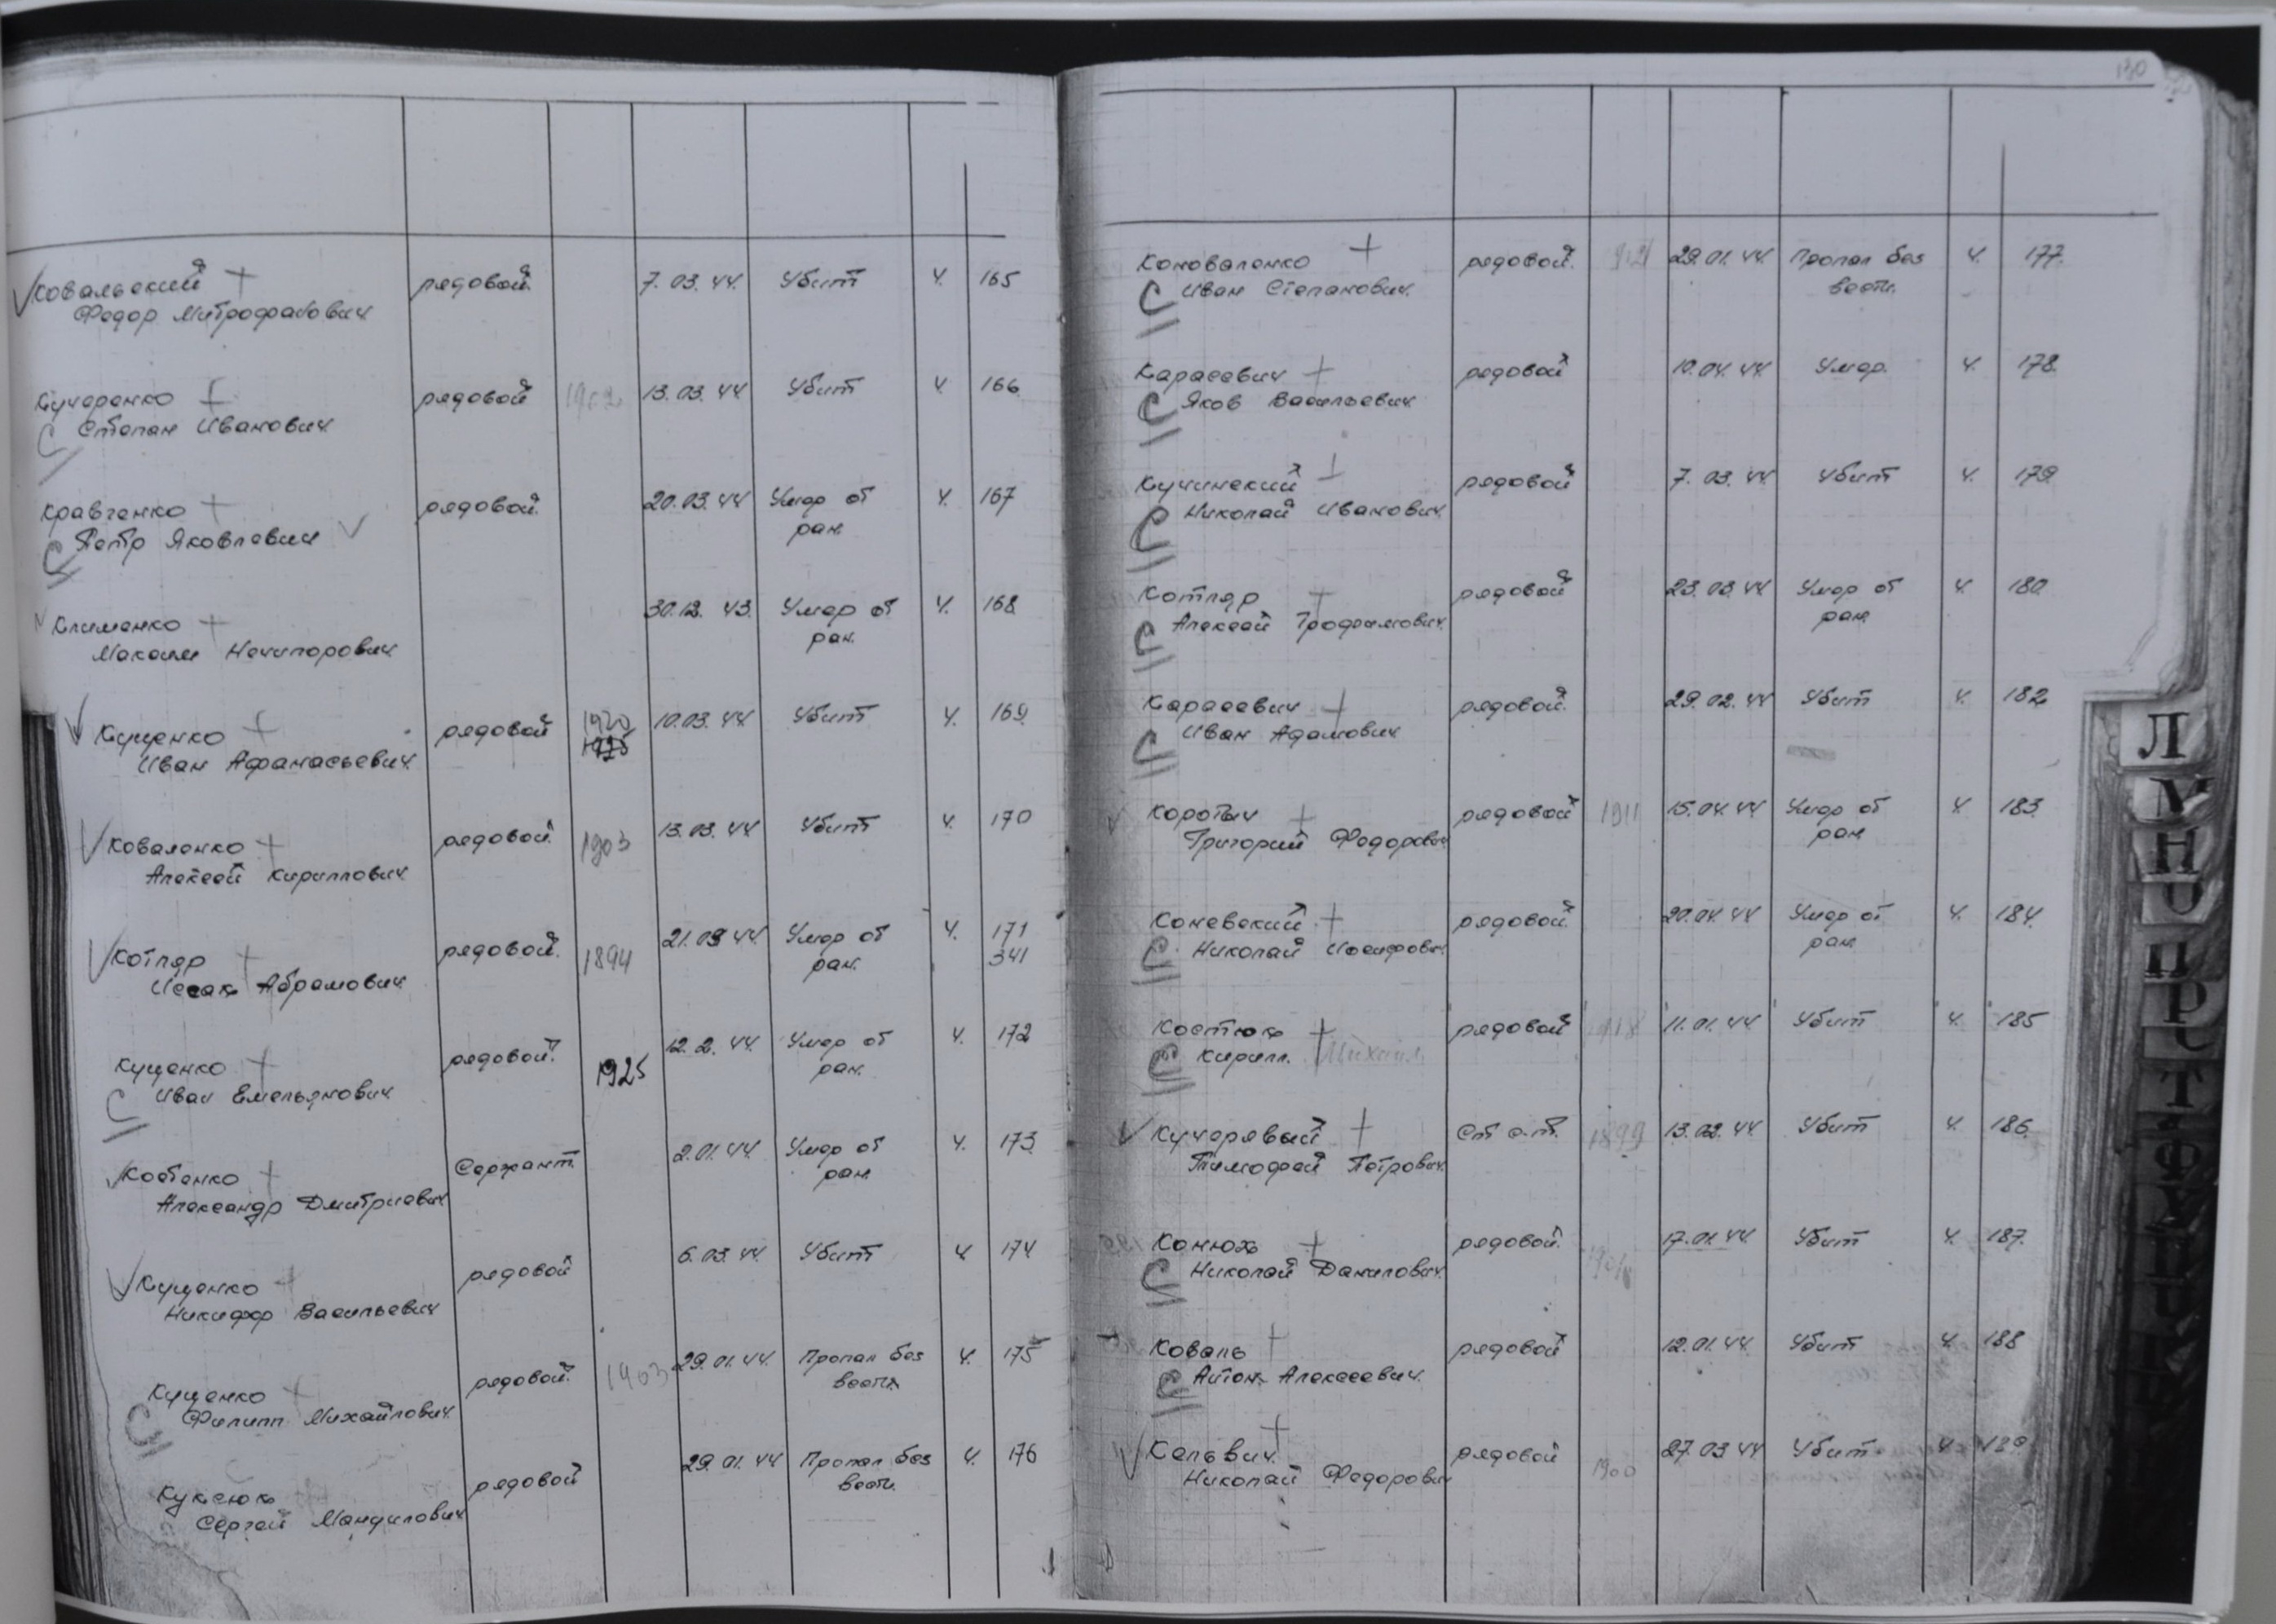 130
Ковальский + рядовой. 7. 03. 44. Убит Ч. 165
Федор Митрофанович
Кучеренко + рядовой 1902 13. 03. 44 Убит Ч 166
С Степан Иванович
Кравченко + рядовой. 20. 03. 44 Умер от Ч. 167
С Петр Яковлевич ран.
Клименко + 30. 12. 43. Умер от Ч. 168
Максим Нечипорович ран.
Куценко + рядовой 1920 10. 03. 44 Убит Ч. 169
Иван Афанасьевич 1925
Коваленко + рядовой. 1903 13. 03. 44 Убит Ч. 170
Алексей Кириллович
Котляр + рядовой. 1894 21. 03 44. Умер от Ч. 171
Исаак Абрамович ран. 341
Куценко + рядовой 1925 12. 2. 44. Умер от Ч. 172
С Иван Емельянович ран.
Костенко + Сержант. 2. 01. 44. Умер от Ч. 173
Александр Дмитриевич ран
Куценко + рядовой 6. 03 44. Убит Ч 174
Никифор Васильевич
Куценко + рядовой. 1903 29. 01. 44. Пропал без Ч. 175
С Филипп Михайлович вести
рядовой 29. 01. 44 Пропал без Ч. 176
Сергей вести.
Коноваленко + рядовой. 29. 01. 44. Пропал без Ч. 177.
С Иван Степанович вести.
Карасевич + рядовой 10. 04. 44. Умер. Ч. 178.
С Яков Васильевич
Кучинский + рядовой 7. 03. 44 Убит Ч. 179.
С Николай Иванович
Котляр + рядовой 23. 03. 44 Умер от Ч. 180
С Алексей Трофимович ран
Карасевич + рядовой. 29. 02. 44 Убит Ч. 182
С Иван Адамович
Коротыч + рядовой 1911 15. 04. 44 Умер от Ч. 183.
Григорий Федорович ран
Коневский + рядовой 20. 04. 44 Умер от Ч. 184.
С Николай Иосифович ран
Костюк + рядовой 1918 11. 01. 44 Убит Ч. 185
С Кирилл. Михайл
Кучерявый + Ст с-т. 1899 13. 02. 44. Убит Ч. 186.
Тимофей Петрович
Конюх + рядовой. 17. 01. 44. Убит Ч. 187.
С Николай Данилович
Коваль + рядовой 12. 01. 44. Убит Ч. 188
С Антон Алексеевич
Кельвич + рядовой 1900 27. 03 44 Убит Ч 189
Николай Федорович
Л
М
Н
О
П
Р
С
Т
Ф